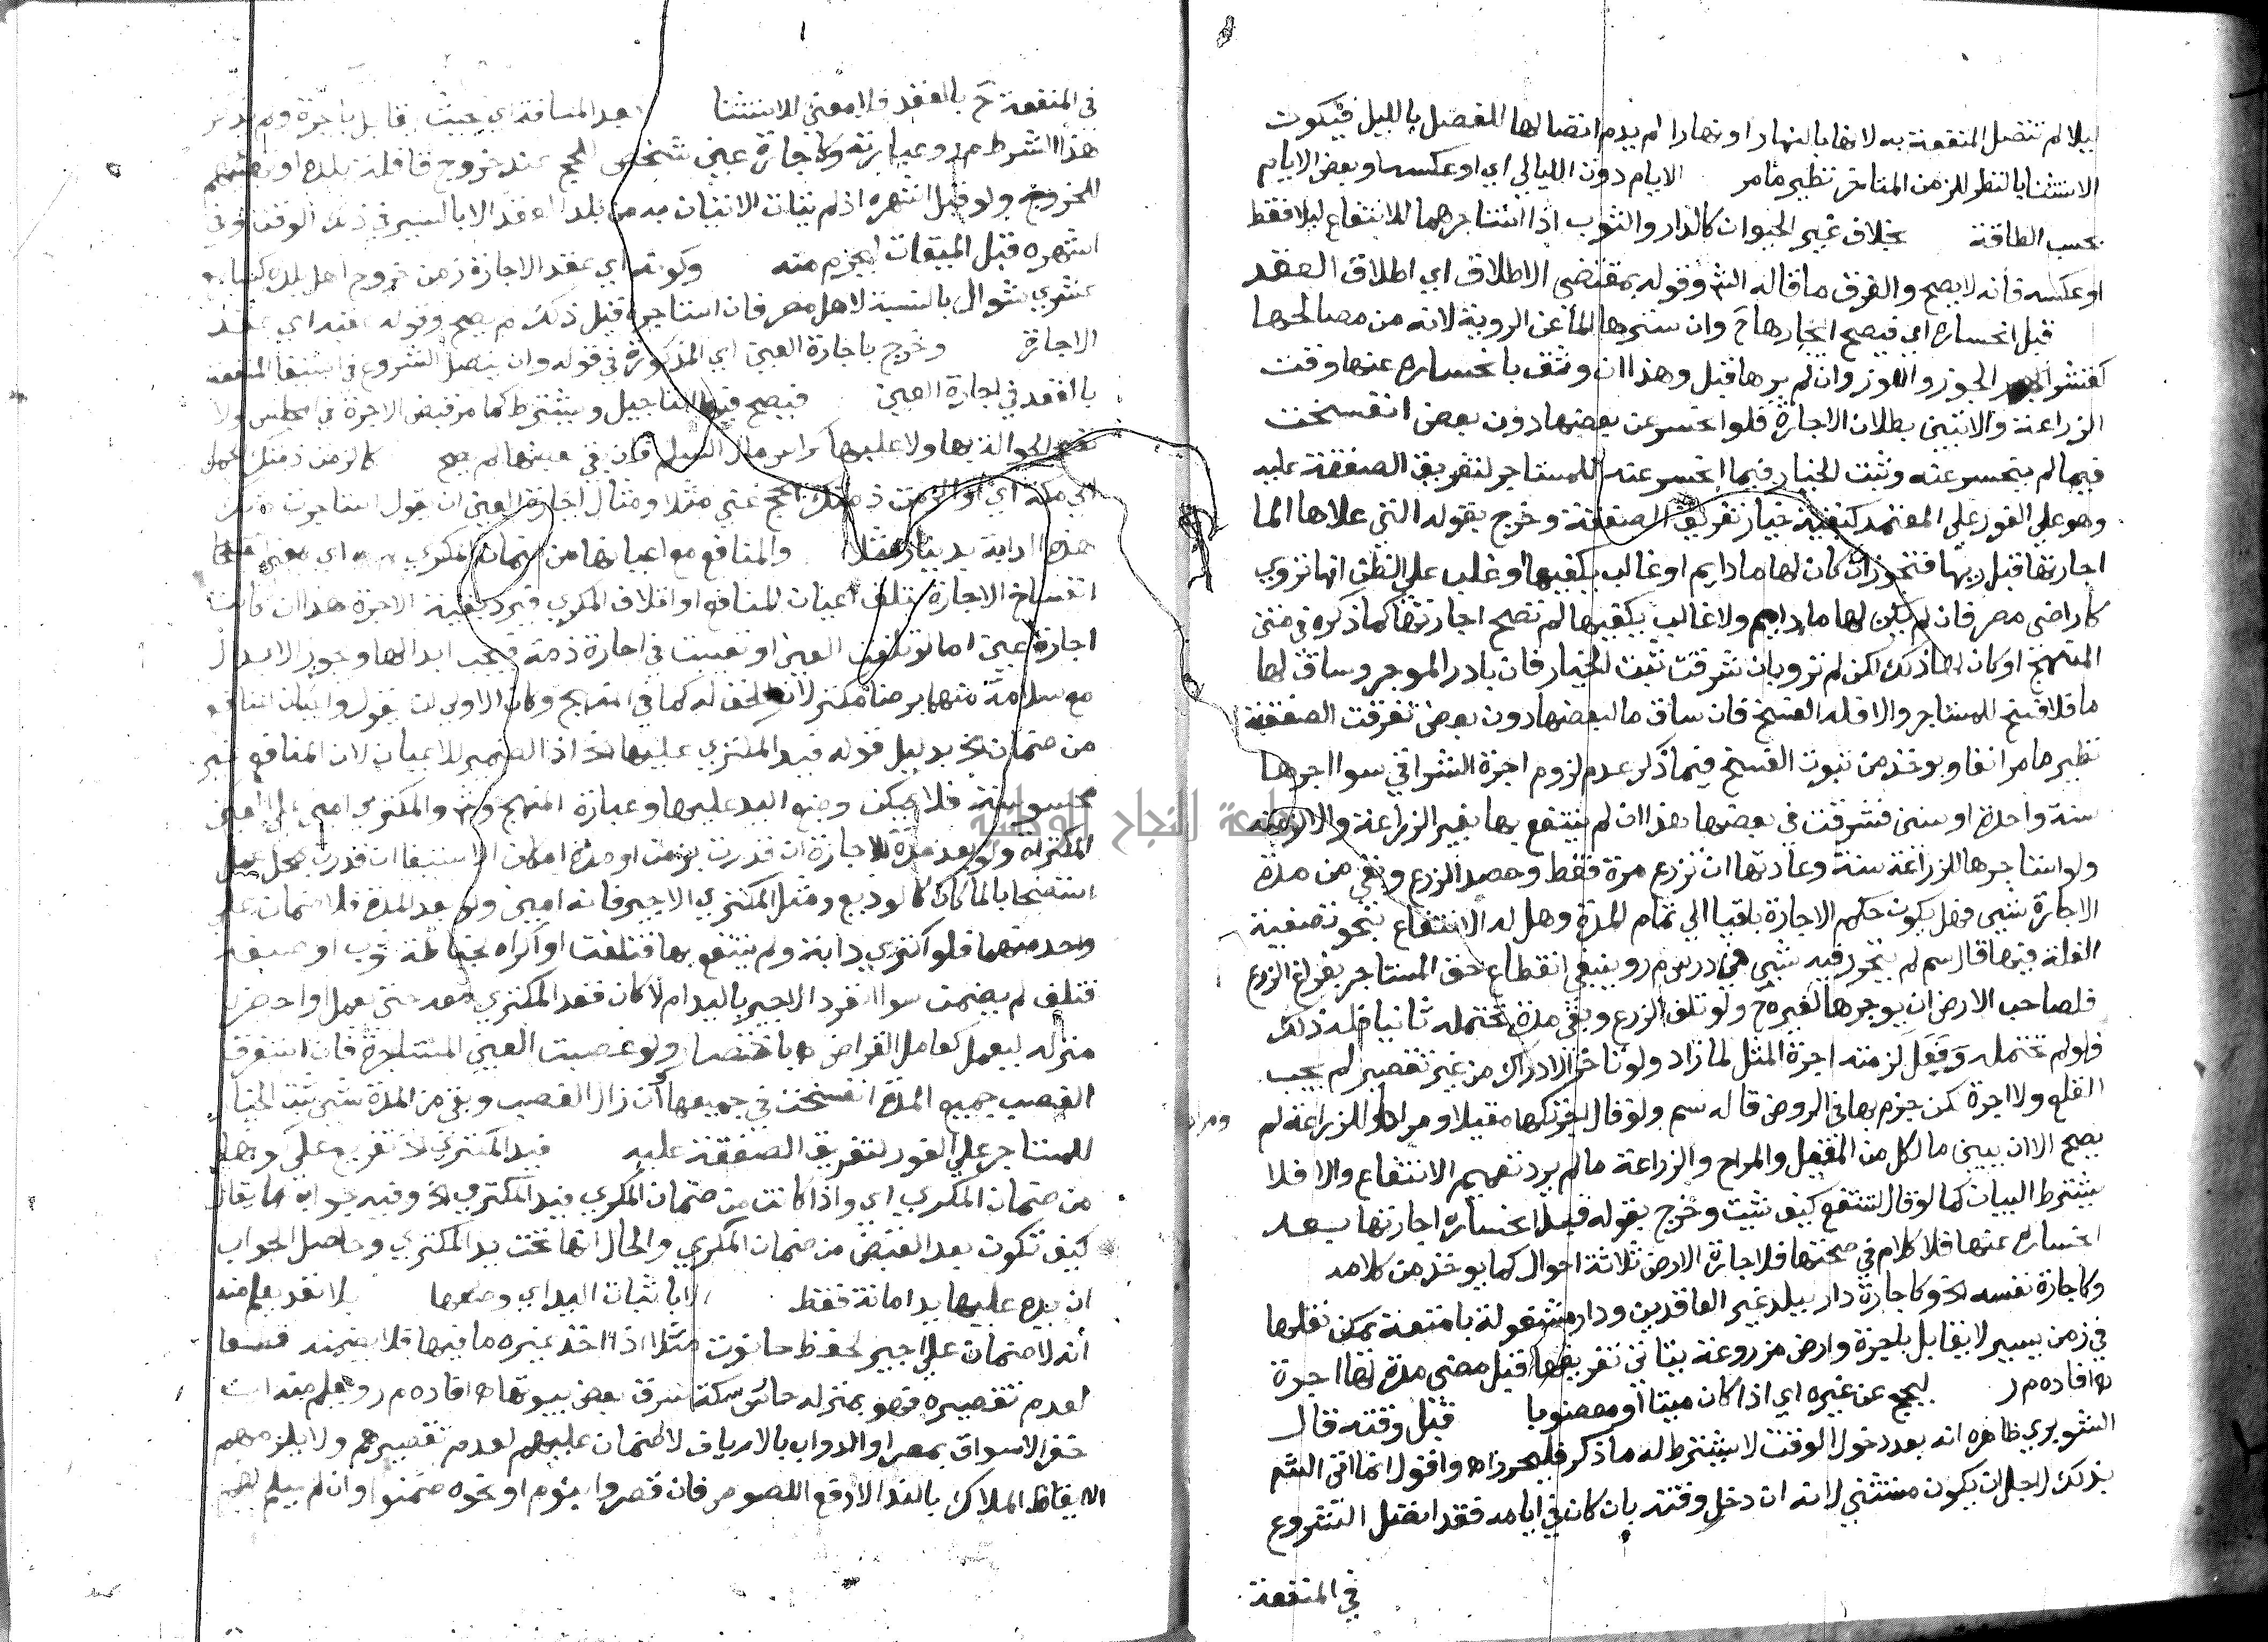 ليلا لم تتصل المنفعة به لانها بالنهار او نهارا لم يدم اتصالها للفصل بالليل فيكون
الاستثنا بالنظر للزمن المتاخر نظير ما مر الايام دون الليالي اي او عكسه او بعض الايام
بحسب الطاقة بخلاف غير الحيوان كالدار والثوب اذا استاجرهما للانتفاع ليلا فقط
او عكسه فانه لا يصح والفرق ما قاله الش وقوله بمقتضى الاطلاق اي اطلاق العقد
قبل انحساره اي فيصح ايجارها ح وان سترها الما عن الروية لانه من مصالحها
كقشر الجوز واللوز وان لم يرها قبل وهذا ان وثق بانحساره عنها وقت
الزراعة والا تبين بطلان الاجارة فلو انحسر عن بعضها دون بعض انفسخت
فيما لم ينحسر عنه وثبت الخيار فيما انحسر عنه للمستاجر لتفريق الصفقة عليه
وهو على الفور على المعتمد كبقية خيار تفريق الصفقة وخرج بقوله التي علاها الما
اجارتها قبل ريها فتجوز ان كان لها ما دايم او غالب يكفيها او غلب على الظن انها تروي
كاراضي مصر فان لم يكن لها ما دايم ولا غالب يكفيها لم تصح اجارتها كما ذكره في متن
المنهج او كان لها ذلك لكن لم ترو بان شرقت ثبت الخيار فان بادر الموجر وساق لها
ما فلا فسخ للمستاجر والا فله الفسخ فان ساق ما لبعضها دون بعض تفرقت الصفقة
نظير ما مر انفا ويوخذ من ثبوت الفسخ فيما ذكر عدم لزوم اجرة الشراقي سوا اجرها
سنة واحدة او سنين فشرقت في بعضها هذا ان لم ينتفع بها بغير الزراعة والا لزمته
ولو استاجرها للزراعة سنة وعادتها ان تزرع مرة فقط وحصد الزرع وبقي من مدة
الاجارة شيى فهل يكون حكم الاجارة باقيا الى تمام المدة وهل له الانتفاع بنحو تصفية
الغلة فيها قال سم لم يتحرر فيه شيى في درس م ر وينبغي انقطاع حق المستاجر بفراغ الزرع
فلصاحب الارض ان يوجرها لغيره ح ولو تلف الزرع وبقي مدة تحتمله ثانيا فله ذلك
فلو لم تحتمله وفعل لزمته اجرة المثل لما زاد ولو تاخر الادراك من غير تقصير لم يجب
القلع ولا اجرة كمن جزم بها في الروض قاله سم ولو قال اجرتكها مقيلا ومراحا وللزراعة لم
يصح الا ان يبين ما لكل من المقيل والمراح والزراعة ما لم يرد تعميم الانتفاع والا فلا
يشترط البيان كما لو قال لتنتفع كيف شيت وخرج بقوله قبل انحساره اجارتها بعد
انحساره عنها فلا كلام في صحتها فلاجارة الارض ثلاثة احوال كما يوخذ من كلامه
وكاجارة نفسه الخ وكاجارة دار ببلد غير العاقدين ودار مشغولة بامتعة يمكن نقلها
في زمن يسير لا يقابل باجرة وارض مزروعة يتاتى تفريغها قبل مضي مدة لها اجرة
اه افاده م ر ليحج عن غيره اي اذا كان ميتا او معضوبا قبل وقته قال
الشوبري ظاهره انه بعد دخول الوقت لا يشترط له ما ذكر فليحرر اه واقول انما اتى الش
بذلك لاجل ان يكون مستثنى لانه ان دخل وقته بان كان في ايامه فقد اتصل الشروع
في المنفعة
في المنفعة ح بالعقد فلا معنى للاستثنا بعد المسافة اي بحيث يقابل باجرة ولم يذكر
هذا الشرط م ر وعبارته وكاجارة عين شخص للحج عند خروج قافلة بلده او تهيئهم
للخروج ولو قبل اشهره اذ لم يتات الاتيان به من بلد العقد الا بالسير في ذلك الوقت وفي
اشهره قبل الميقات ليحرم منه وكونه اي عقد الاجارة زمن خروج اهل بلده كسابع
عشري شوال بالنسبة لاهل مصر فان استاجره قبل ذلك لم يصح وقوله عقبه اي عقد
الاجارة وخرج باجارة العين اي المذكورة في قوله وان يتصل الشروع في استيفا المنفعة
بالعقد في اجارة العين فيصح فيه التاجيل ويشترط كما مر قبض الاجرة في المجلس ولا
تصح الحوالة بها ولا عليها كراس مال السلم فان في عينها لم يصح كالزمت ذمتك الحمل
الى مكة اي او الزمت ذمتك الحج عني مثلا ومثال اجارة العين ان يقول استاجرت منك
هذه الدابة بدينار مثلا والمنافع مع اعيانها من ضمان المكري اي معنى
انفساخ الاجارة بتلف اعيان المنافع او اتلاف المكري فيرد بقية الاجرة هذا ان كانت
اجارة عين اما لو تلفت العين او تعيبت في اجارة ذمة فيجب ابدالها ويجوز الابدال
مع سلامة منها برضا مكتر لان الحق له كما في المنهج وكان الاولى ان يقول واعيان المنافع
من ضمان الخ بدليل قوله فيد المكتري عليها الخ اذ الضمير للاعيان لان المنافع غير
محسوسة فلا يمكن وضع اليد عليها وعبارة المنهج وش والمكتري امين على العين
المكتراة ولو بعد مدة الاجارة ان قدرت بزمن او مدة امكان الاستيفا ان قدرت بمحل عمل
استصحابا لما كان كالوديع ومثل المكتري الاجير فانه امين ولو بعد المدة فلا ضمان على
واحد منهما فلو اكترى دابة ولم ينتفع بها فتلفت او اكراه لخياطة ثوب او صبغه
فتلف لم يضمن سوا انفرد الاجير باليد ام لا كان قعد المكتري معه حتى يعمل او احضره
منزله ليعمل كعامل القراض اه باختصار ولو غصبت العين المستاجرة فان استغرق
الغصب جميع المدة انفسخت في جميعها وان زال الغصب وبقي من المدة شيى ثبت الخيار
للمستاجر على الفور لتفريق الصفقة عليه فيد المكتري الخ تفريع على وجعل
من ضمان المكري اي واذا كانت من ضمان المكري فيد المكتري الخ وفيه جواب عما يقال
كيف تكون بعد القبض من ضمان المكري والحال انها تحت يد المكتري وحاصل الجواب
ان يده عليها يد امانة فقط الا باثبات اليد اي وضعها بلا تقد يعلم منه
انه لا ضمان على اجير لحفظ حانوت مثلا اذا اخذ غيره ما فيها فلا يضمنه قطعا
لعدم تقصيره فهو بمنزله حارس سكة سرق بعض بيوتها اه افاده م ر ويعلم منه ان
خفرا لاسواق بمصر او الدواب بالارياف لا ضمان عليهم لعدم تقصيرهم ولا يلزمهم
الا ايقاظ الملاك بالندا لا دفع اللصوص فان قصروا بنوم او نحوه ضمنوا وان لم يسلم لهم